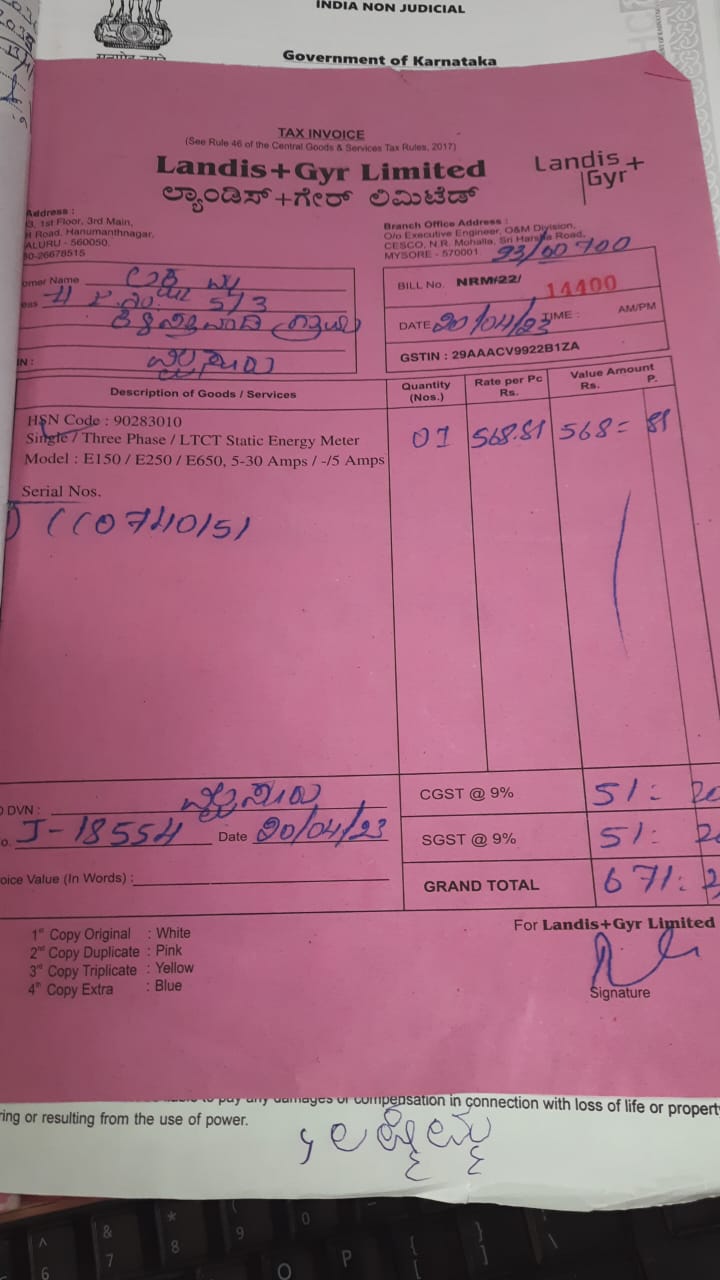 INDIA NON JUDICIAL
Government of Karnataka
TAX INVOICE
(See Rule 46 of the Central Goods & Services Tax Rules, 2017)
Landis+Gyr Limited
ಲ್ಯಾಂಡಿಸ್+ಗೇರ್ ಲಿಮಿಟೆಡ್
Landis+
Gyr
Address :
3, 1st Floor, 3rd Main,
Road, Hanumanthnagar,
ALURU - 560050.
80-26678515
Branch Office Address :
O/o Executive Engineer, O&M Division,
CESCO, N.R. Mohalla, Sri Harsha Road,
MYSORE - 570001
93/00700
omer Name
5/3
BILL No. NRM/22/ 14400
DATE 20/04/23 TIME : AM/PM
GSTIN : 29AAACV9922B1ZA
IN :
Description of Goods / Services
Quantity (Nos.)
Rate per Pc Rs.
Value Amount Rs. P.
HSN Code : 90283010
Single / Three Phase / LTCT Static Energy Meter
Model : E150 / E250 / E650, 5-30 Amps / -/5 Amps
01 568.81 568= 81
Serial Nos.
DVN :
J-18554 Date 20/04/23
oice Value (In Words) :
CGST @ 9% 51:
SGST @ 9% 51:
GRAND TOTAL 671:
1st Copy Original : White
2nd Copy Duplicate : Pink
3rd Copy Triplicate : Yellow
4th Copy Extra : Blue
For Landis+Gyr Limited
Signature
to pay any damages or compensation in connection with loss of life or property
ring or resulting from the use of power.